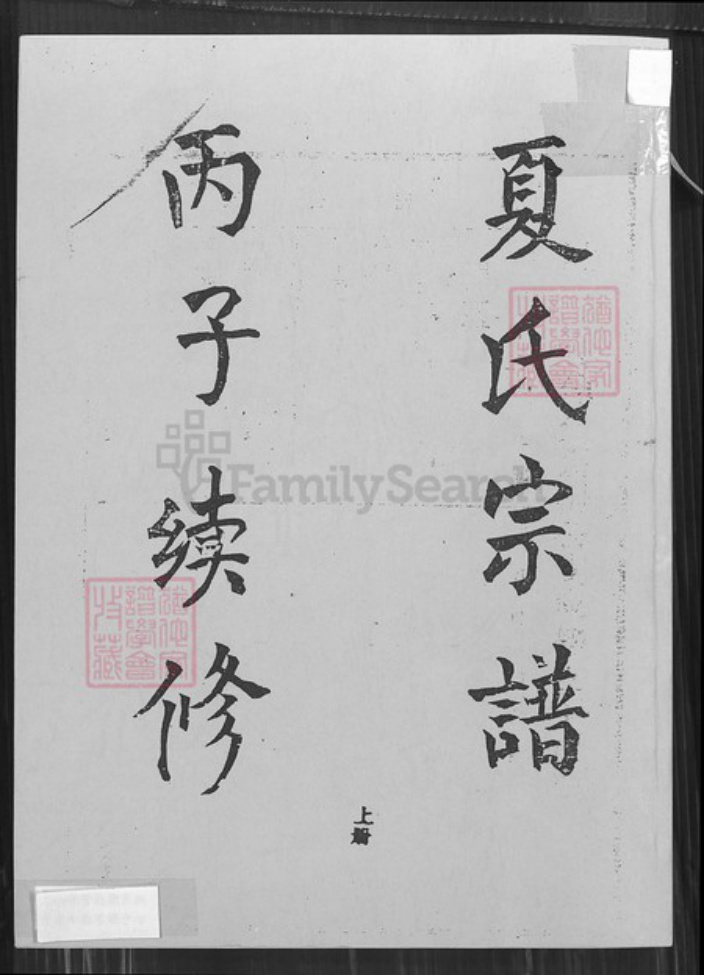 夏氏宗譜
丙子续修
上册
猶他家
譜學會
特藏
FamilySearch
猶他家
譜學會
特藏